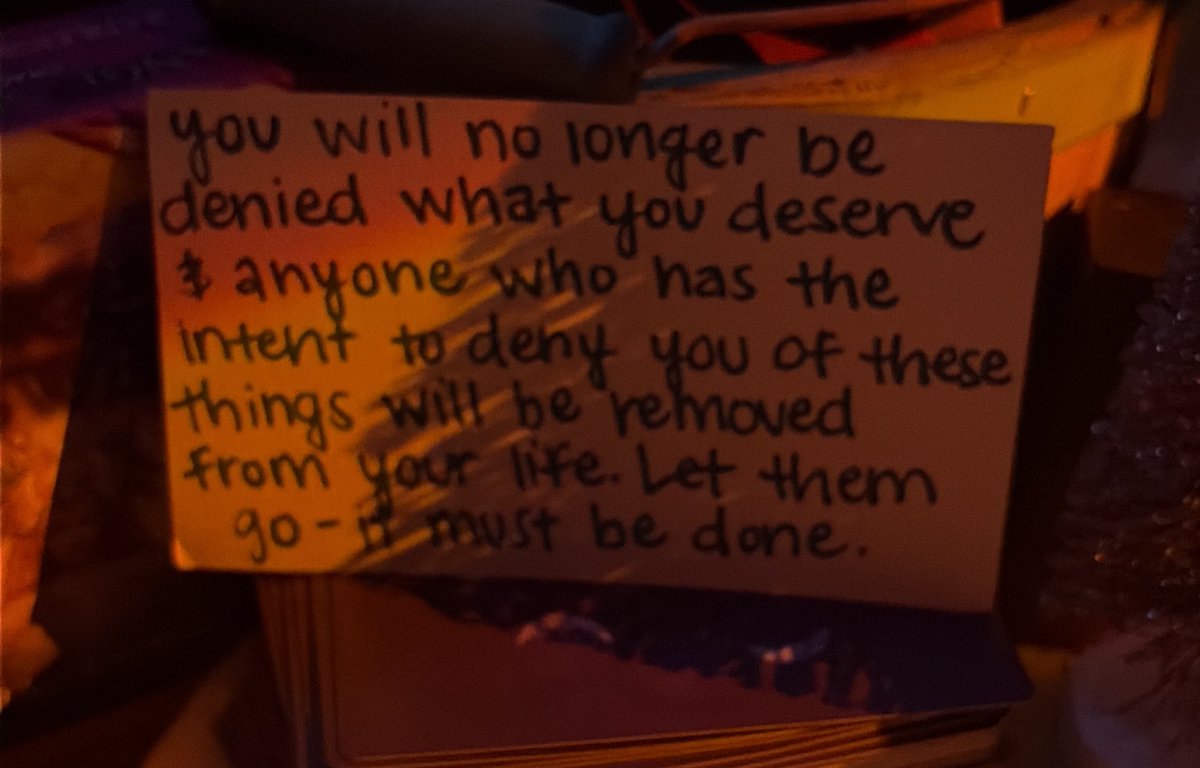 you will no longer be
denied what you deserve
& anyone who has the
intent to deny you of these
things will be removed
from your life. Let them
go - it must be done.